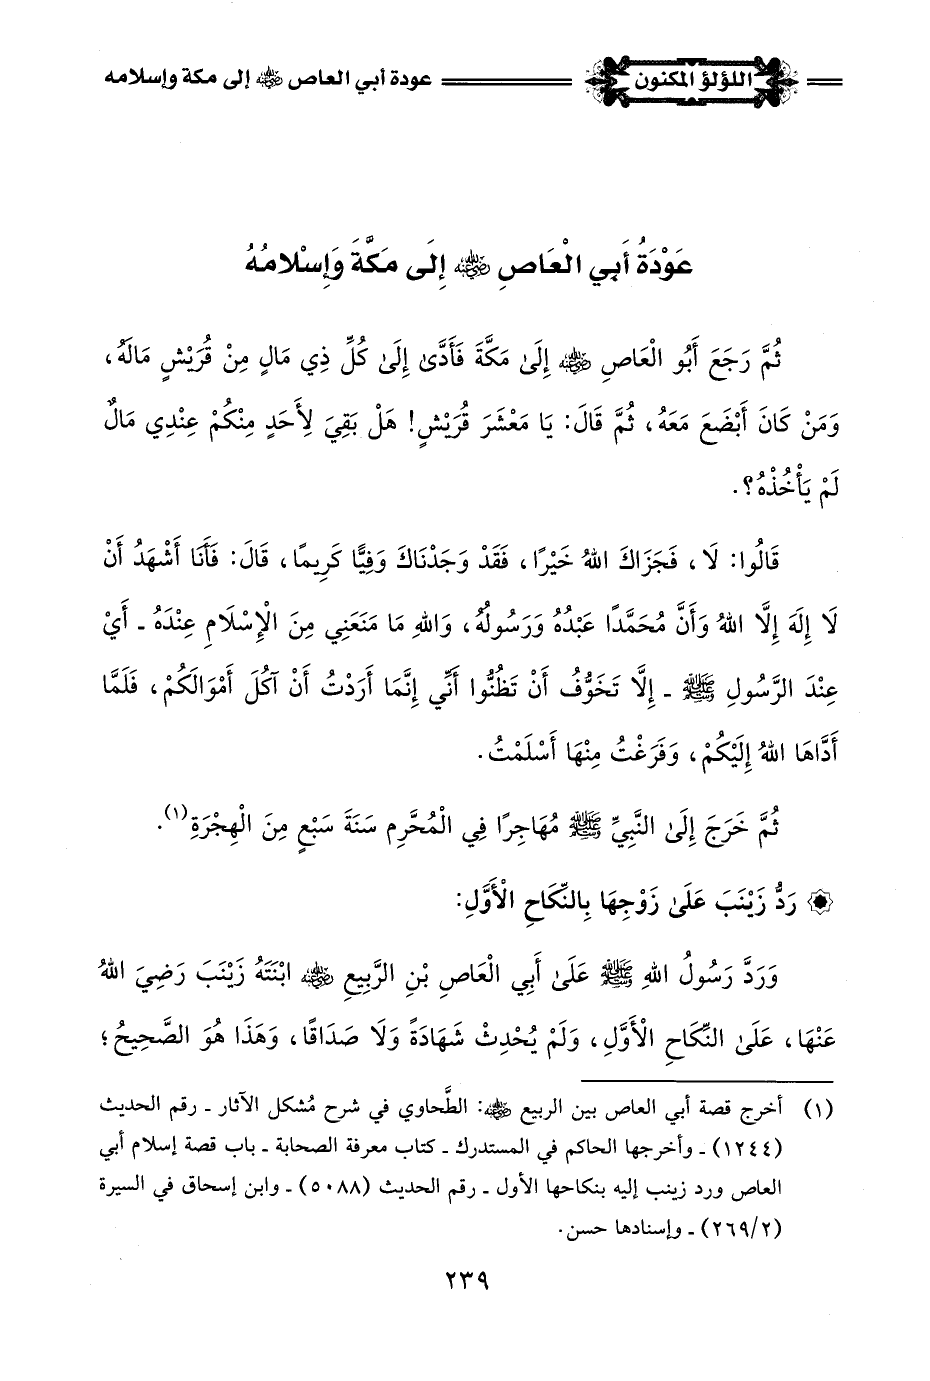 اللؤلؤ المكنون عودة أبي العاص رضي الله عنه إلى مكة وإسلامه
عَوْدَةُ أَبي الْعَاصِ رضي الله عنه إِلَى مَكَّةَ وَإِسْلامُهُ
ثُمَّ رَجَعَ أَبُو الْعَاصِ رضي الله عنه إِلَىٰ مَكَّةَ فَأَدَّىٰ إِلَىٰ كُلِّ ذِي مَالٍ مِنْ قُرَيْشٍ مَالَهُ،
وَمَنْ كَانَ أَبْضَعَ مَعَهُ، ثُمَّ قَالَ: يَا مَعْشَرَ قُرَيْشٍ! هَلْ بَقِيَ لِأَحَدٍ مِنْكُمْ عِنْدِي مَالٌ
لَمْ يَأْخُذْهُ؟.
قَالُوا: لَا، فَجَزَاكَ اللهُ خَيْرًا، فَقَدْ وَجَدْنَاكَ وَفِيًّا كَرِيمًا، قَالَ: فَأَنَا أَشْهَدُ أَنْ
لَا إِلَهَ إِلَّا اللهُ وَأَنَّ مُحَمَّدًا عَبْدُهُ وَرَسُولُهُ، وَاللهِ مَا مَنَعَنِي مِنَ الْإِسْلَامِ عِنْدَهُ ـ أَيْ
عِنْدَ الرَّسُولِ ﷺ ـ إِلَّا تَخَوُّفُ أَنْ تَظُنُّوا أَنِّي إِنَّمَا أَرَدْتُ أَنْ آكُلَ أَمْوَالَكُمْ، فَلَمَّا
أَدَّاهَا اللهُ إِلَيْكُمْ، وَفَرَغْتُ مِنْهَا أَسْلَمْتُ.
ثُمَّ خَرَجَ إِلَىٰ النَّبِيِّ ﷺ مُهَاجِرًا فِي الْمُحَرَّمِ سَنَةَ سَبْعٍ مِنَ الْهِجْرَةِ(١).
رَدُّ زَيْنَبَ عَلَىٰ زَوْجِهَا بِالنِّكَاحِ الْأَوَّلِ:
وَرَدَّ رَسُولُ اللهِ ﷺ عَلَىٰ أَبِي الْعَاصِ بْنِ الرَّبِيعِ رضي الله عنه ابْنَتَهُ زَيْنَبَ رَضِيَ اللهُ
عَنْهَا، عَلَىٰ النِّكَاحِ الْأَوَّلِ، وَلَمْ يُحْدِثْ شَهَادَةً وَلَا صَدَاقًا، وَهَذَا هُوَ الصَّحِيحُ؛
(١) أخرج قصة أبي العاص بين الربيع رضي الله عنه: الطَّحاوي في شرح مُشكل الآثار ـ رقم الحديث
(١٢٤٤) ـ وأخرجها الحاكم في المستدرك ـ كتاب معرفة الصحابة ـ باب قصة إسلام أبي
العاص ورد زينب إليه بنكاحها الأول ـ رقم الحديث (٥٠٨٨) ـ وابن إسحاق في السيرة
(٢٦٩/٢) ـ وإسنادها حسن.
٢٣٩